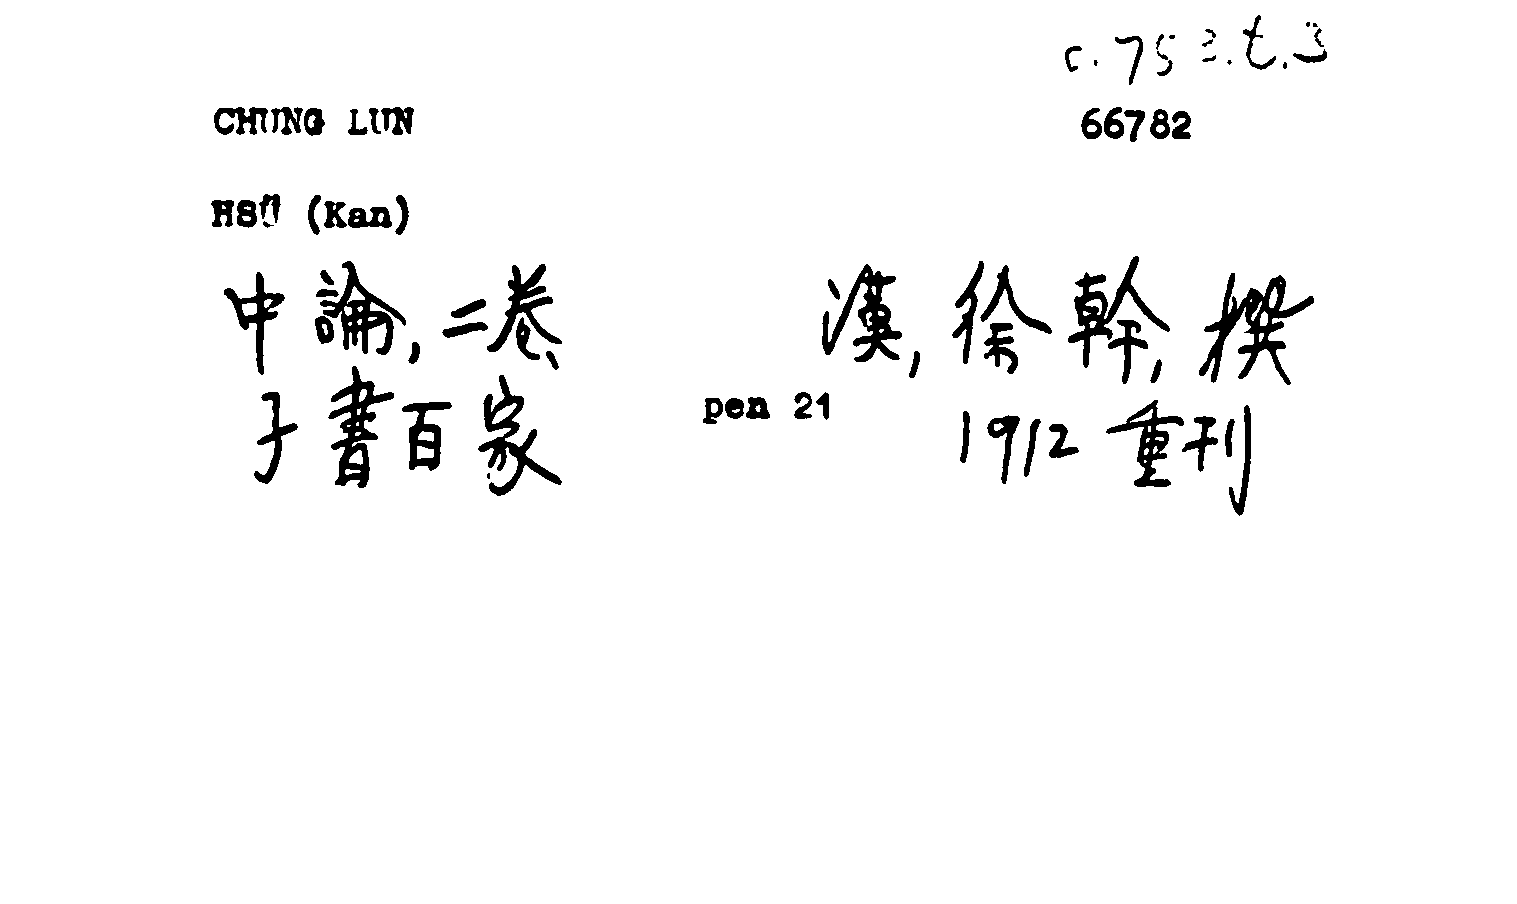 c.753.t.3
CHUNG LUN 66782
HSÜ (Kan)
中論,二卷、 漢,徐幹,撰
子書百家 pen 21 1912重刊